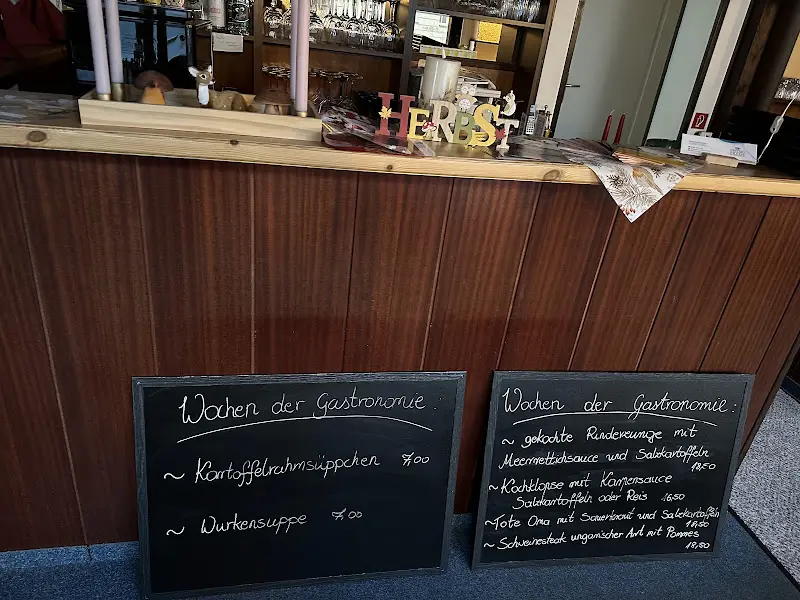 HERBST
Wochen der Gastronomie:
~ Kartoffelrahmsüppchen 7,00
~ Wurkensuppe 7,00
Wochen der Gastronomie:
~ gekochte Rinderzunge mit
Meerrettichsauce und Salzkartoffeln
18,50
~ Kochklopse mit Kapernsauce
Salzkartoffeln oder Reis 16,50
~ Tote Oma mit Sauerkraut und Salzkartoffeln
~ Schweinesteak ungarischer Art mit Pommes
18,50